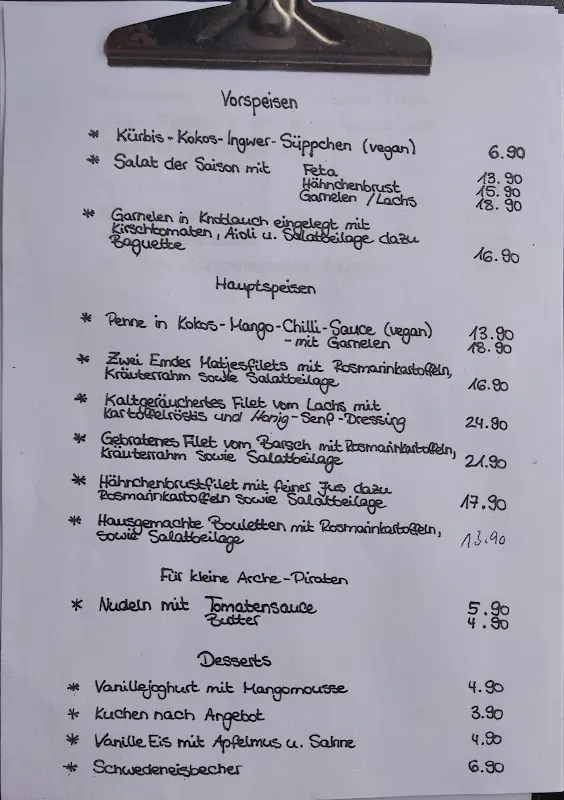 Vorspeisen
* Kürbis-Kokos-Ingwer-Süppchen (vegan) 6.90
* Salat der Saison mit Feta 13.90
Hähnchenbrust 15.90
Garnelen / Lachs 18.90
* Garnelen in Knoblauch eingelegt mit
Kirschtomaten, Aioli u. Salatbeilage dazu
Baguette 16.90
Hauptspeisen
* Penne in Kokos-Mango-Chilli-Sauce (vegan) 13.90
- mit Garnelen 18.90
* Zwei Emder Matjesfilets mit Rosmarinkartoffeln,
Kräuterrahm sowie Salatbeilage 16.90
* Kaltgeräuchertes Filet vom Lachs mit
Kartoffelröstis und Honig-Senf-Dressing 24.90
* Gebratenes Filet vom Barsch mit Rosmarinkartoffeln,
Kräuterrahm sowie Salatbeilage 21.90
* Hähnchenbrustfilet mit feiner Jus dazu
Rosmarinkartoffeln sowie Salatbeilage 17.90
* Hausgemachte Bouletten mit Rosmarinkartoffeln,
sowie Salatbeilage 13.90
Für kleine Arche-Piraten
* Nudeln mit Tomatensauce 5.90
Butter 4.90
Desserts
* Vanillejoghurt mit Mangomousse 4.90
* Kuchen nach Angebot 3.90
* Vanille Eis mit Apfelmus u. Sahne 4.90
* Schwedeneisbecher 6.90